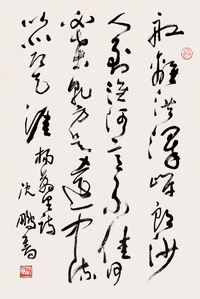 船離洪澤岸頭沙
人到淮河意不佳何
必桑乾方是遠中流
以北即天涯 楊萬里詩
沈鵬書